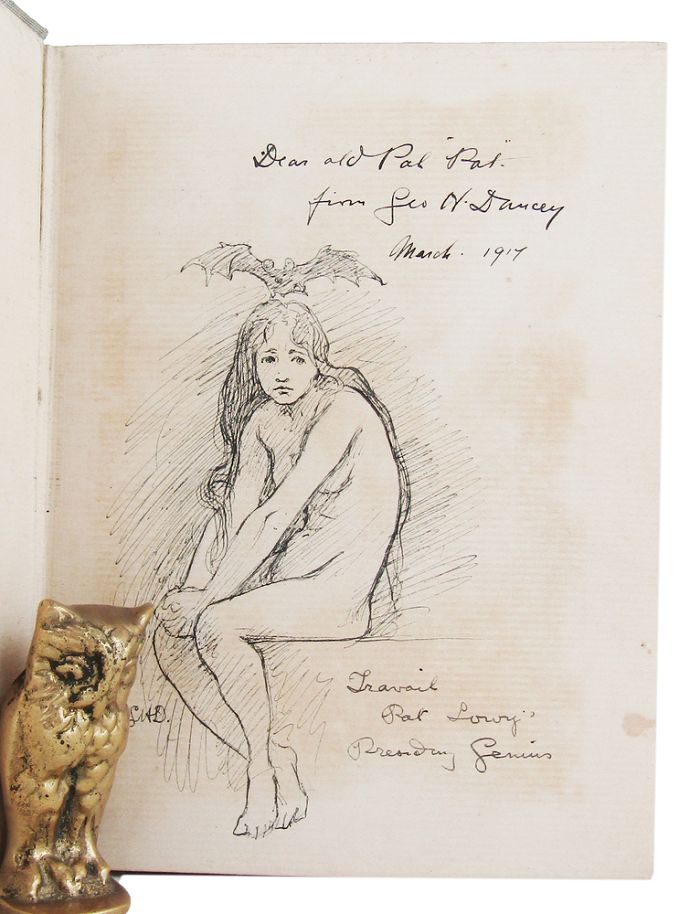 Dear old Pal "Pat"
from Geo H. Dancey
March. 1917
Travail
Pat Lowry's
Presiding Genius
GHD.